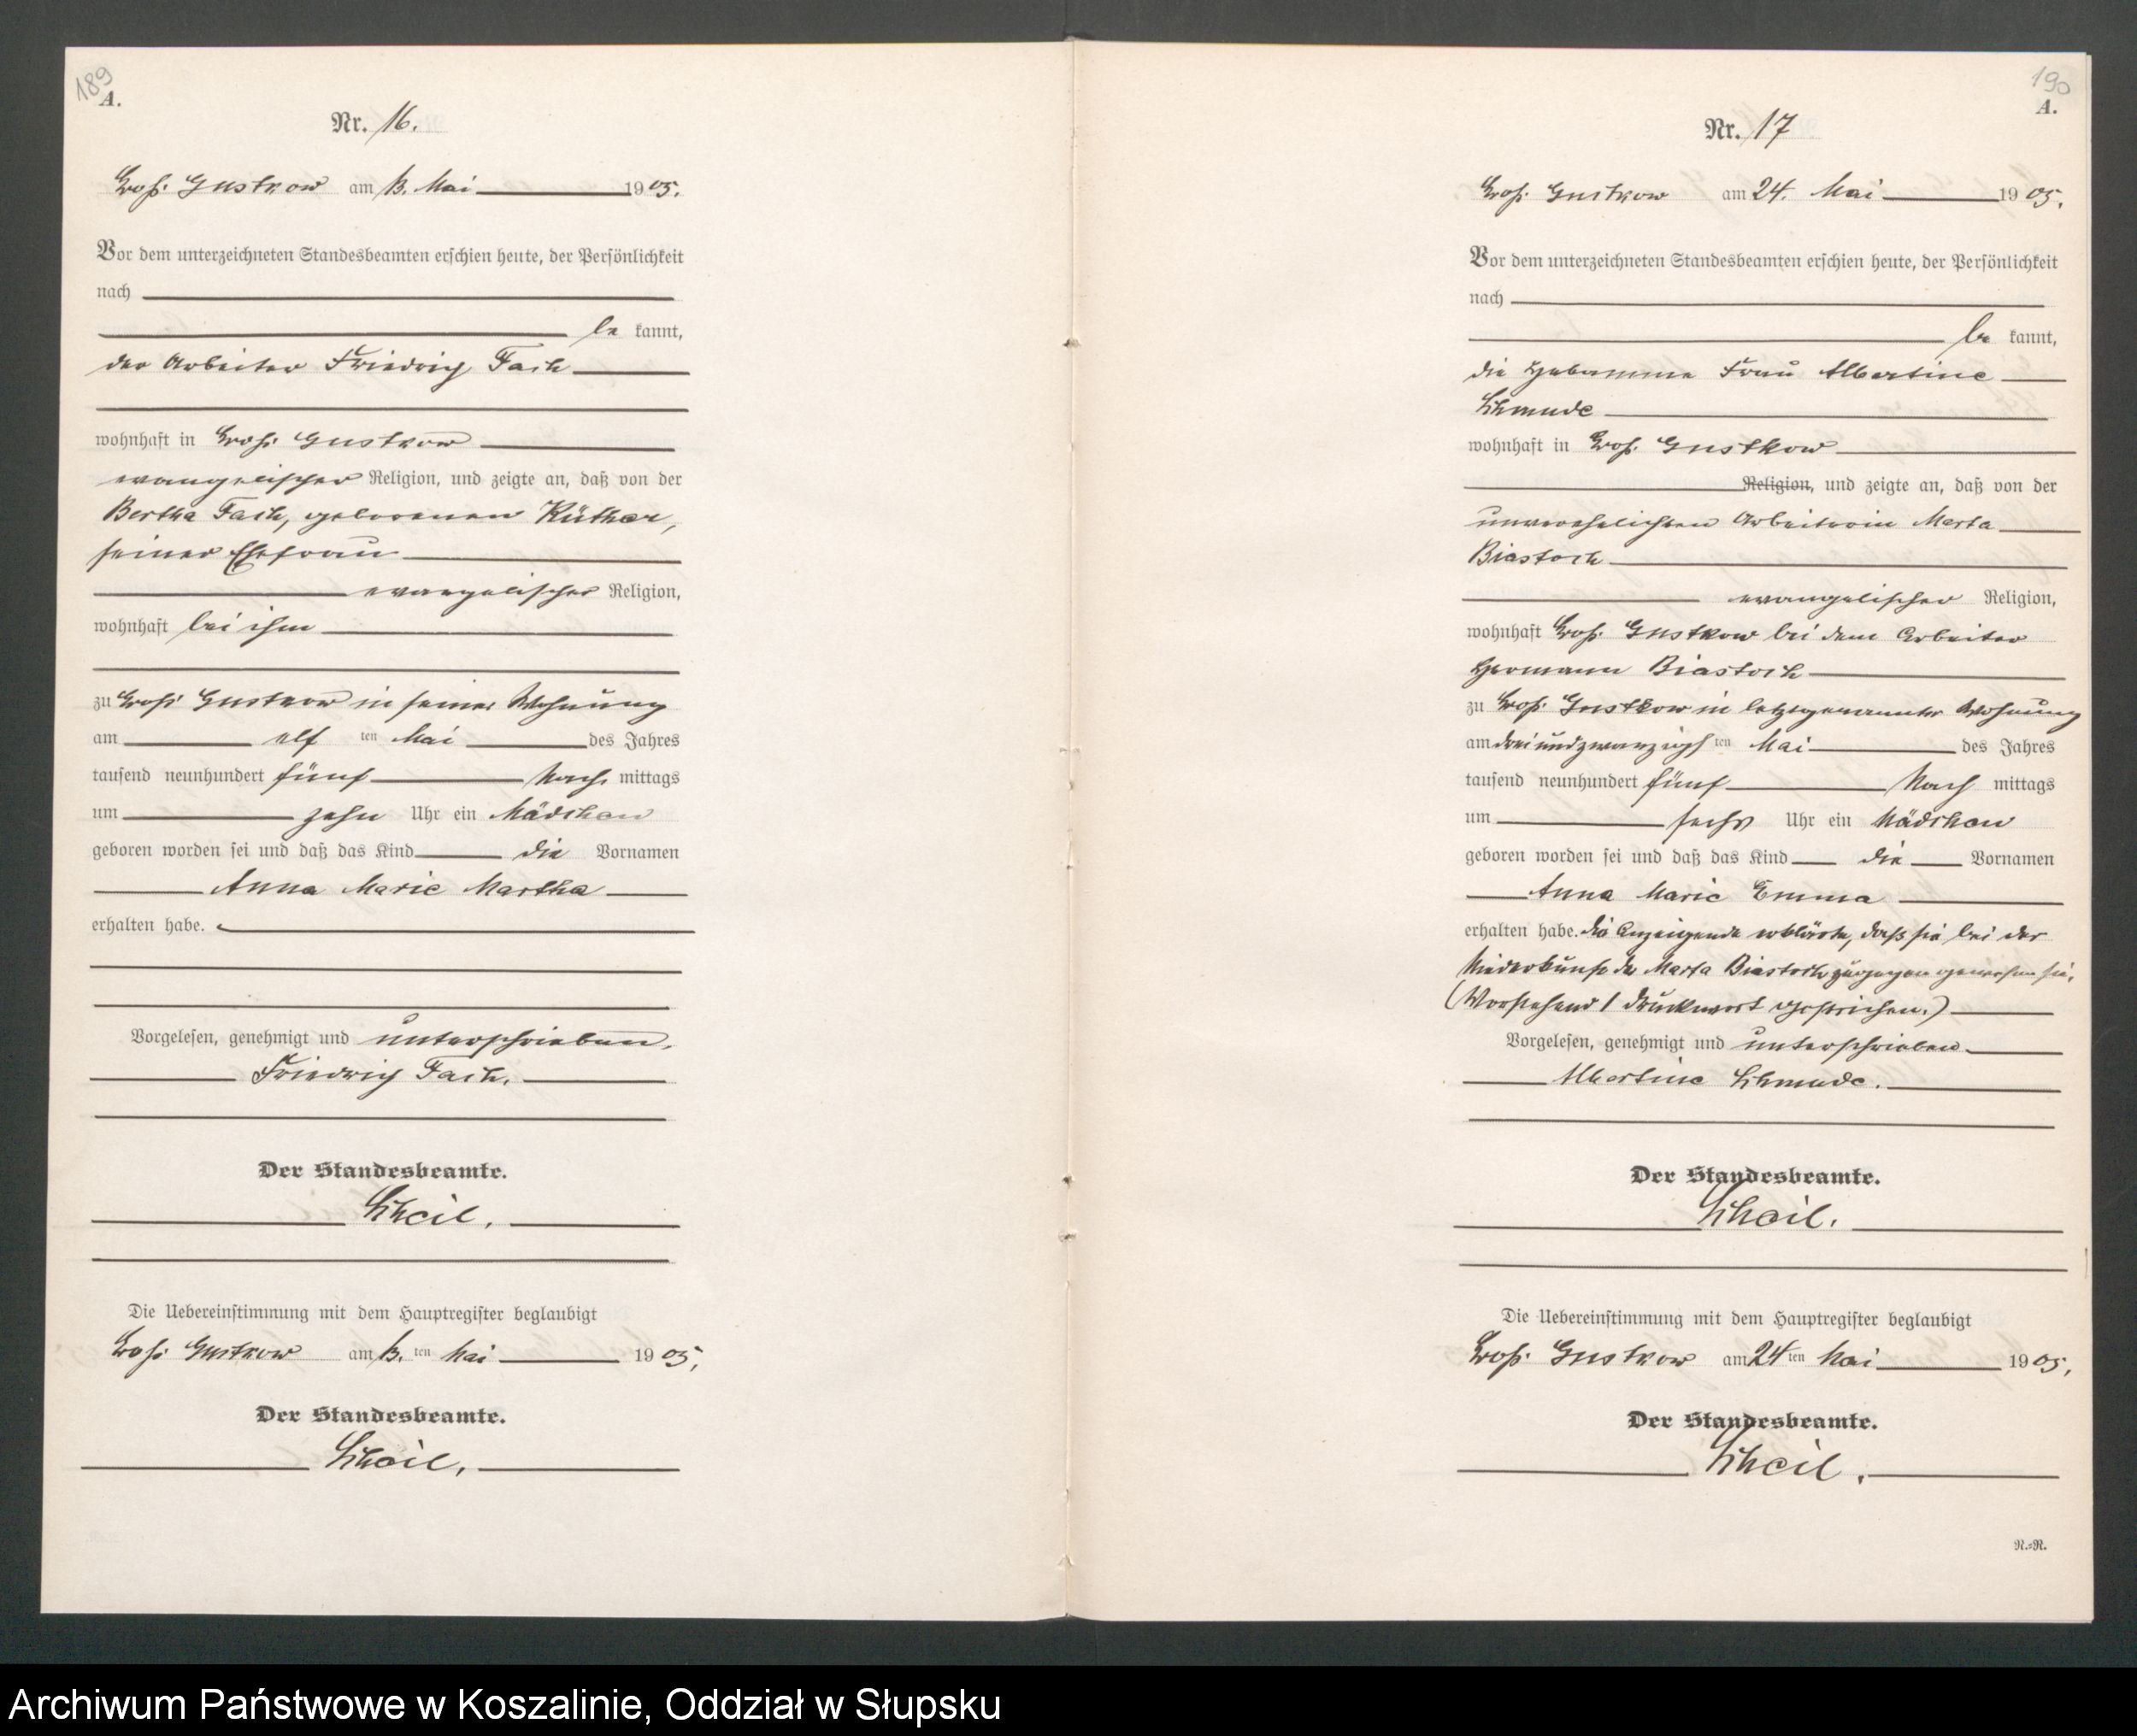 189
A.
Nr. 16.
Groß Gustkow am 13. Mai 1905.
Vor dem unterzeichneten Standesbeamten erschien heute, der Persönlichkeit
nach
be kannt,
der Arbeiter Friedrich Fach
wohnhaft in Groß Gustkow
evangelischer Religion, und zeigte an, daß von der
Bertha Fach, geborenen Küther,
seiner Ehefrau
evangelischer Religion,
wohnhaft bei ihm
zu Groß Gustkow in seiner Wohnung
am elf ten Mai des Jahres
tausend neunhundert fünf Nach mittags
um zehn Uhr ein Mädchen
geboren worden sei und daß das Kind die Vornamen
Anna Marie Martha
erhalten habe.
Vorgelesen, genehmigt und unterschrieben.
Friedrich Fach.
Der Standesbeamte.
Scheil.
Die Uebereinstimmung mit dem Hauptregister beglaubigt
Groß Gustkow am 13. ten Mai 1905.
Der Standesbeamte.
Scheil.
190
A.
Nr. 17
Groß Gustkow am 24. Mai 1905.
Vor dem unterzeichneten Standesbeamten erschien heute, der Persönlichkeit
nach
be kannt,
die Hebamme Frau Albertine
Schmude
wohnhaft in Groß Gustkow
Religion, und zeigte an, daß von der
unverehelichten Arbeiterin Marta
Biastoch
evangelischer Religion,
wohnhaft Groß Gustkow bei dem Arbeiter
Hermann Biastoch
zu Groß Gustkow in letztgenannter Wohnung
am dreiundzwanzigs ten Mai des Jahres
tausend neunhundert fünf Nach mittags
um sechs Uhr ein Mädchen
geboren worden sei und daß das Kind die Vornamen
Anna Marie Emma
erhalten habe. Die Anzeigende erklärte, daß sie bei der
Niederkunft der Marta Biastoch zugegen gewesen sei.
(Vorstehend 1 Druckwort gestrichen.)
Vorgelesen, genehmigt und unterschrieben
Albertine Schmude.
Der Standesbeamte.
Scheil.
Die Uebereinstimmung mit dem Hauptregister beglaubigt
Groß Gustkow am 24 ten Mai 1905.
Der Standesbeamte.
Scheil.
N.=R.
Archiwum Państwowe w Koszalinie, Oddział w Słupsku